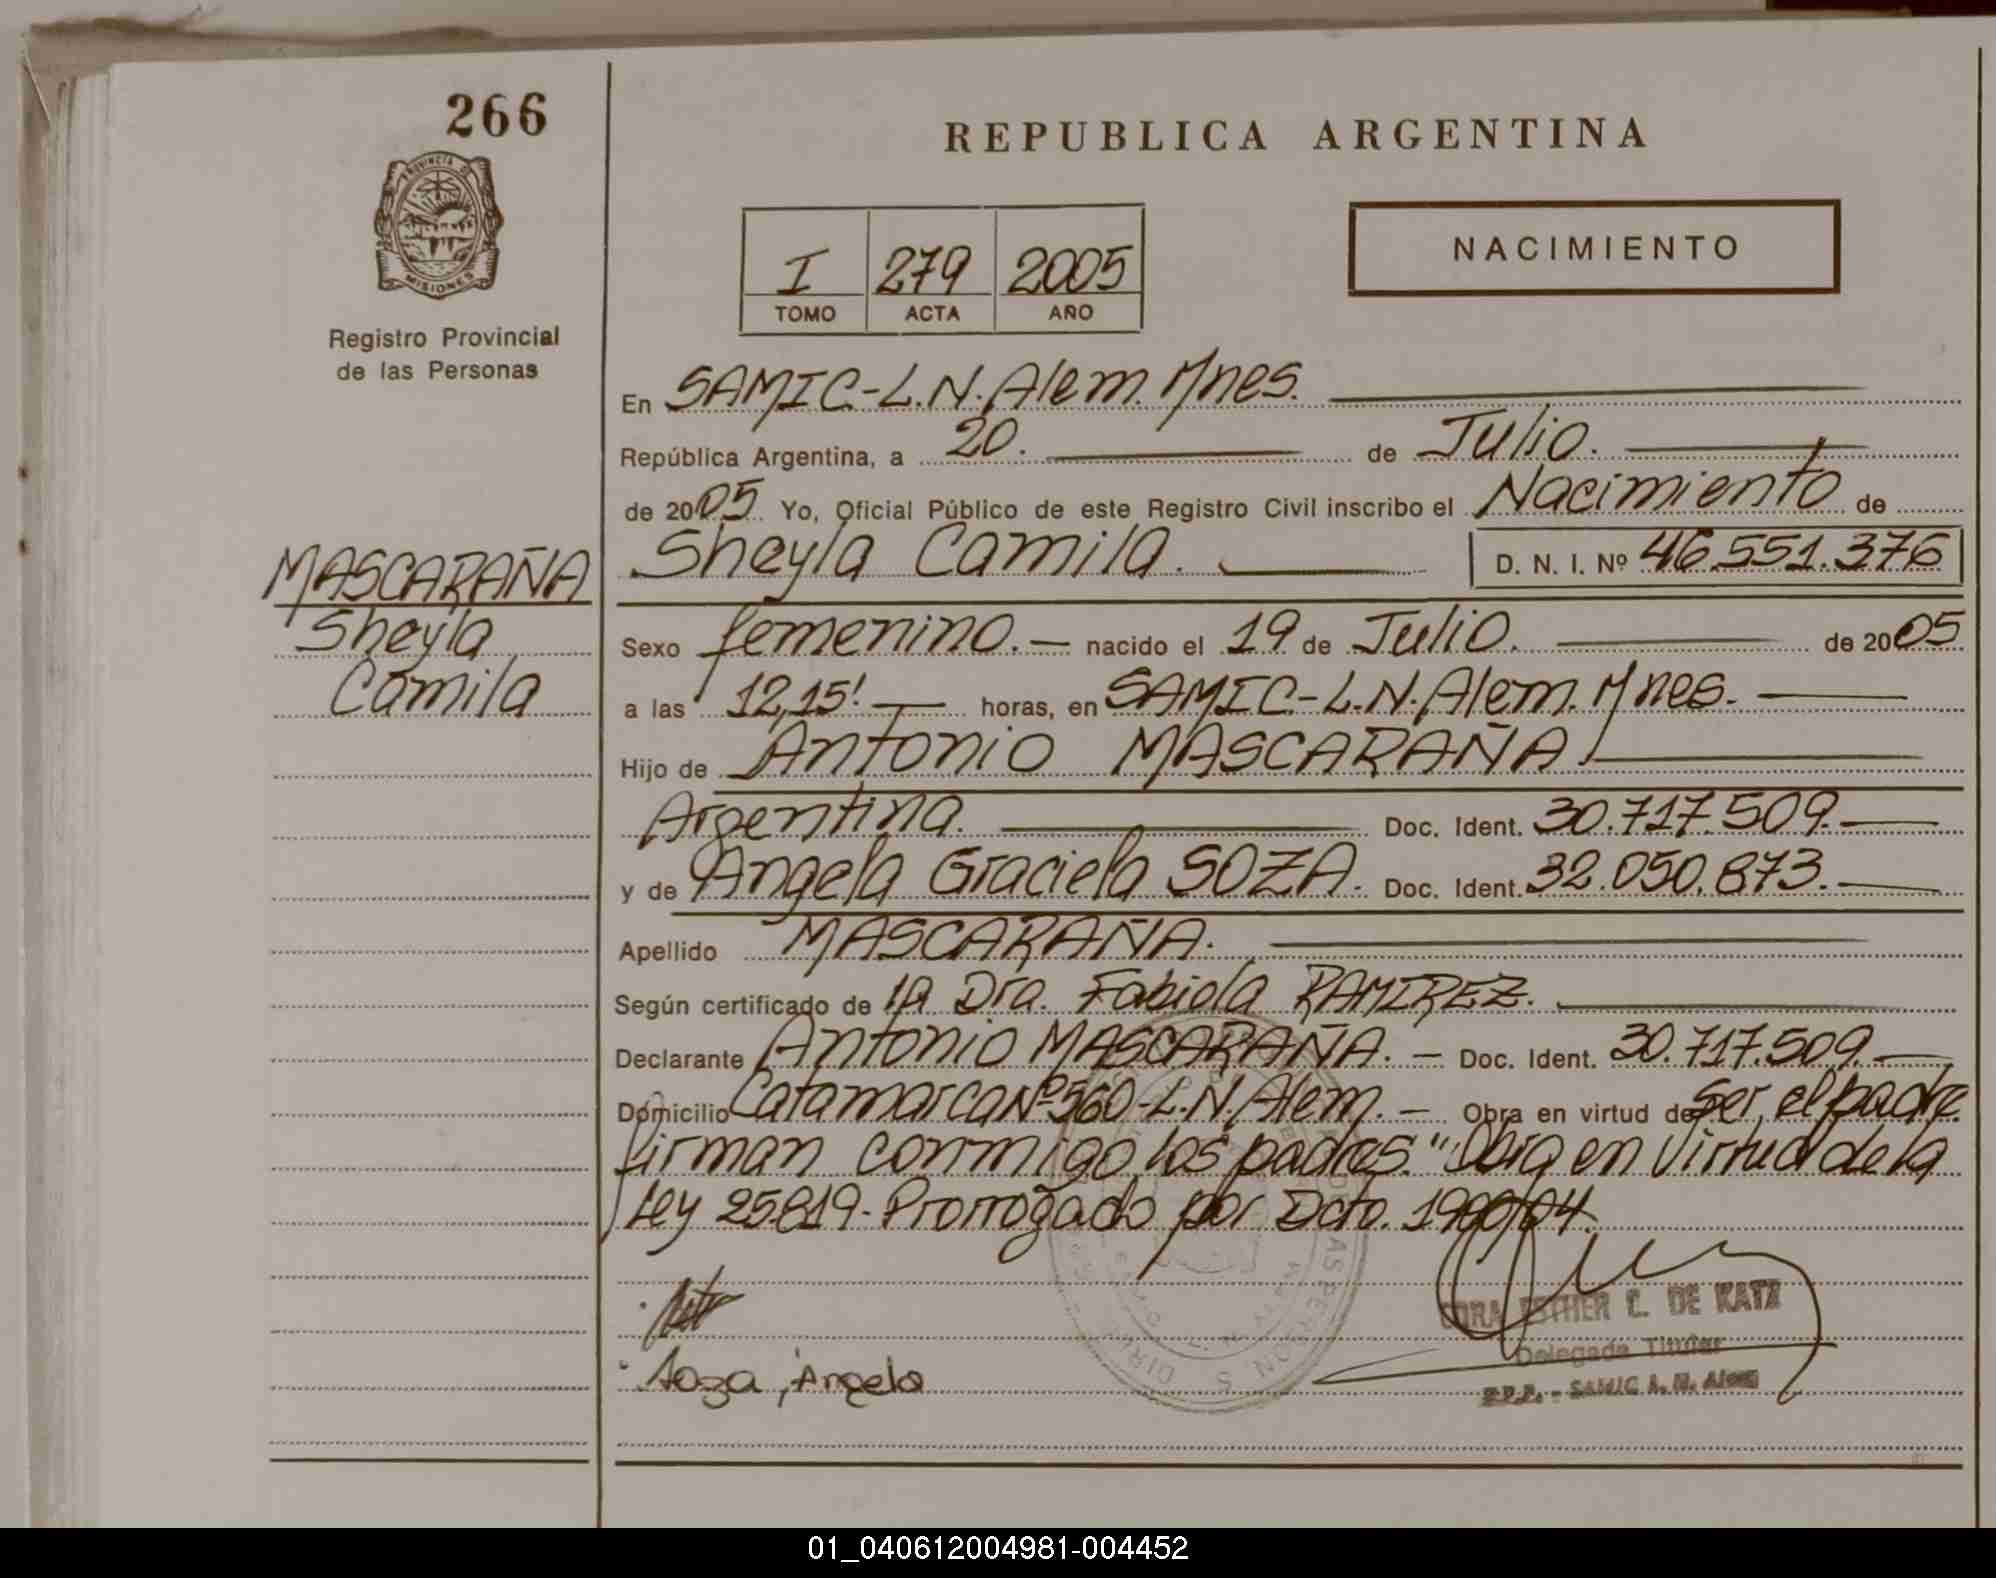 266
PROVINCIA DE
MISIONES
Registro Provincial
de las Personas
MASCARAÑA
Sheyla
Camila
REPUBLICA ARGENTINA
I 279 2005
TOMO ACTA AÑO
NACIMIENTO
En SAMIC-L.N.Alem.Mnes.
República Argentina, a 20. de Julio.
de 2005 Yo, Oficial Público de este Registro Civil inscribo el Nacimiento de
Sheyla Camila. D. N. I. Nº 46.551.376
Sexo femenino.— nacido el 19 de Julio. de 2005
a las 12,15! — horas, en SAMIC-L.N.Alem.Mnes.
Hijo de Antonio MASCARAÑA
Argentina. Doc. Ident. 30.717.509.
y de Angela Graciela SOZA. Doc. Ident. 32.050.873.
Apellido MASCARAÑA.
Según certificado de la Dra. Fabiola RAMIREZ.
Declarante Antonio MASCARAÑA. — Doc. Ident. 30.717.509.
Domicilio Catamarca Nº560-L.N.Alem. — Obra en virtud de ser, el padre
firman conmigo los padres." Obra en Virtud de la
Ley 25.819- Prorrogado por Dcto. 1900/04.
CORA ESTHER C. DE KATZ
Delegada Titular
SAMIC L. N. Alem
Soza, Angela
01_040612004981-004452